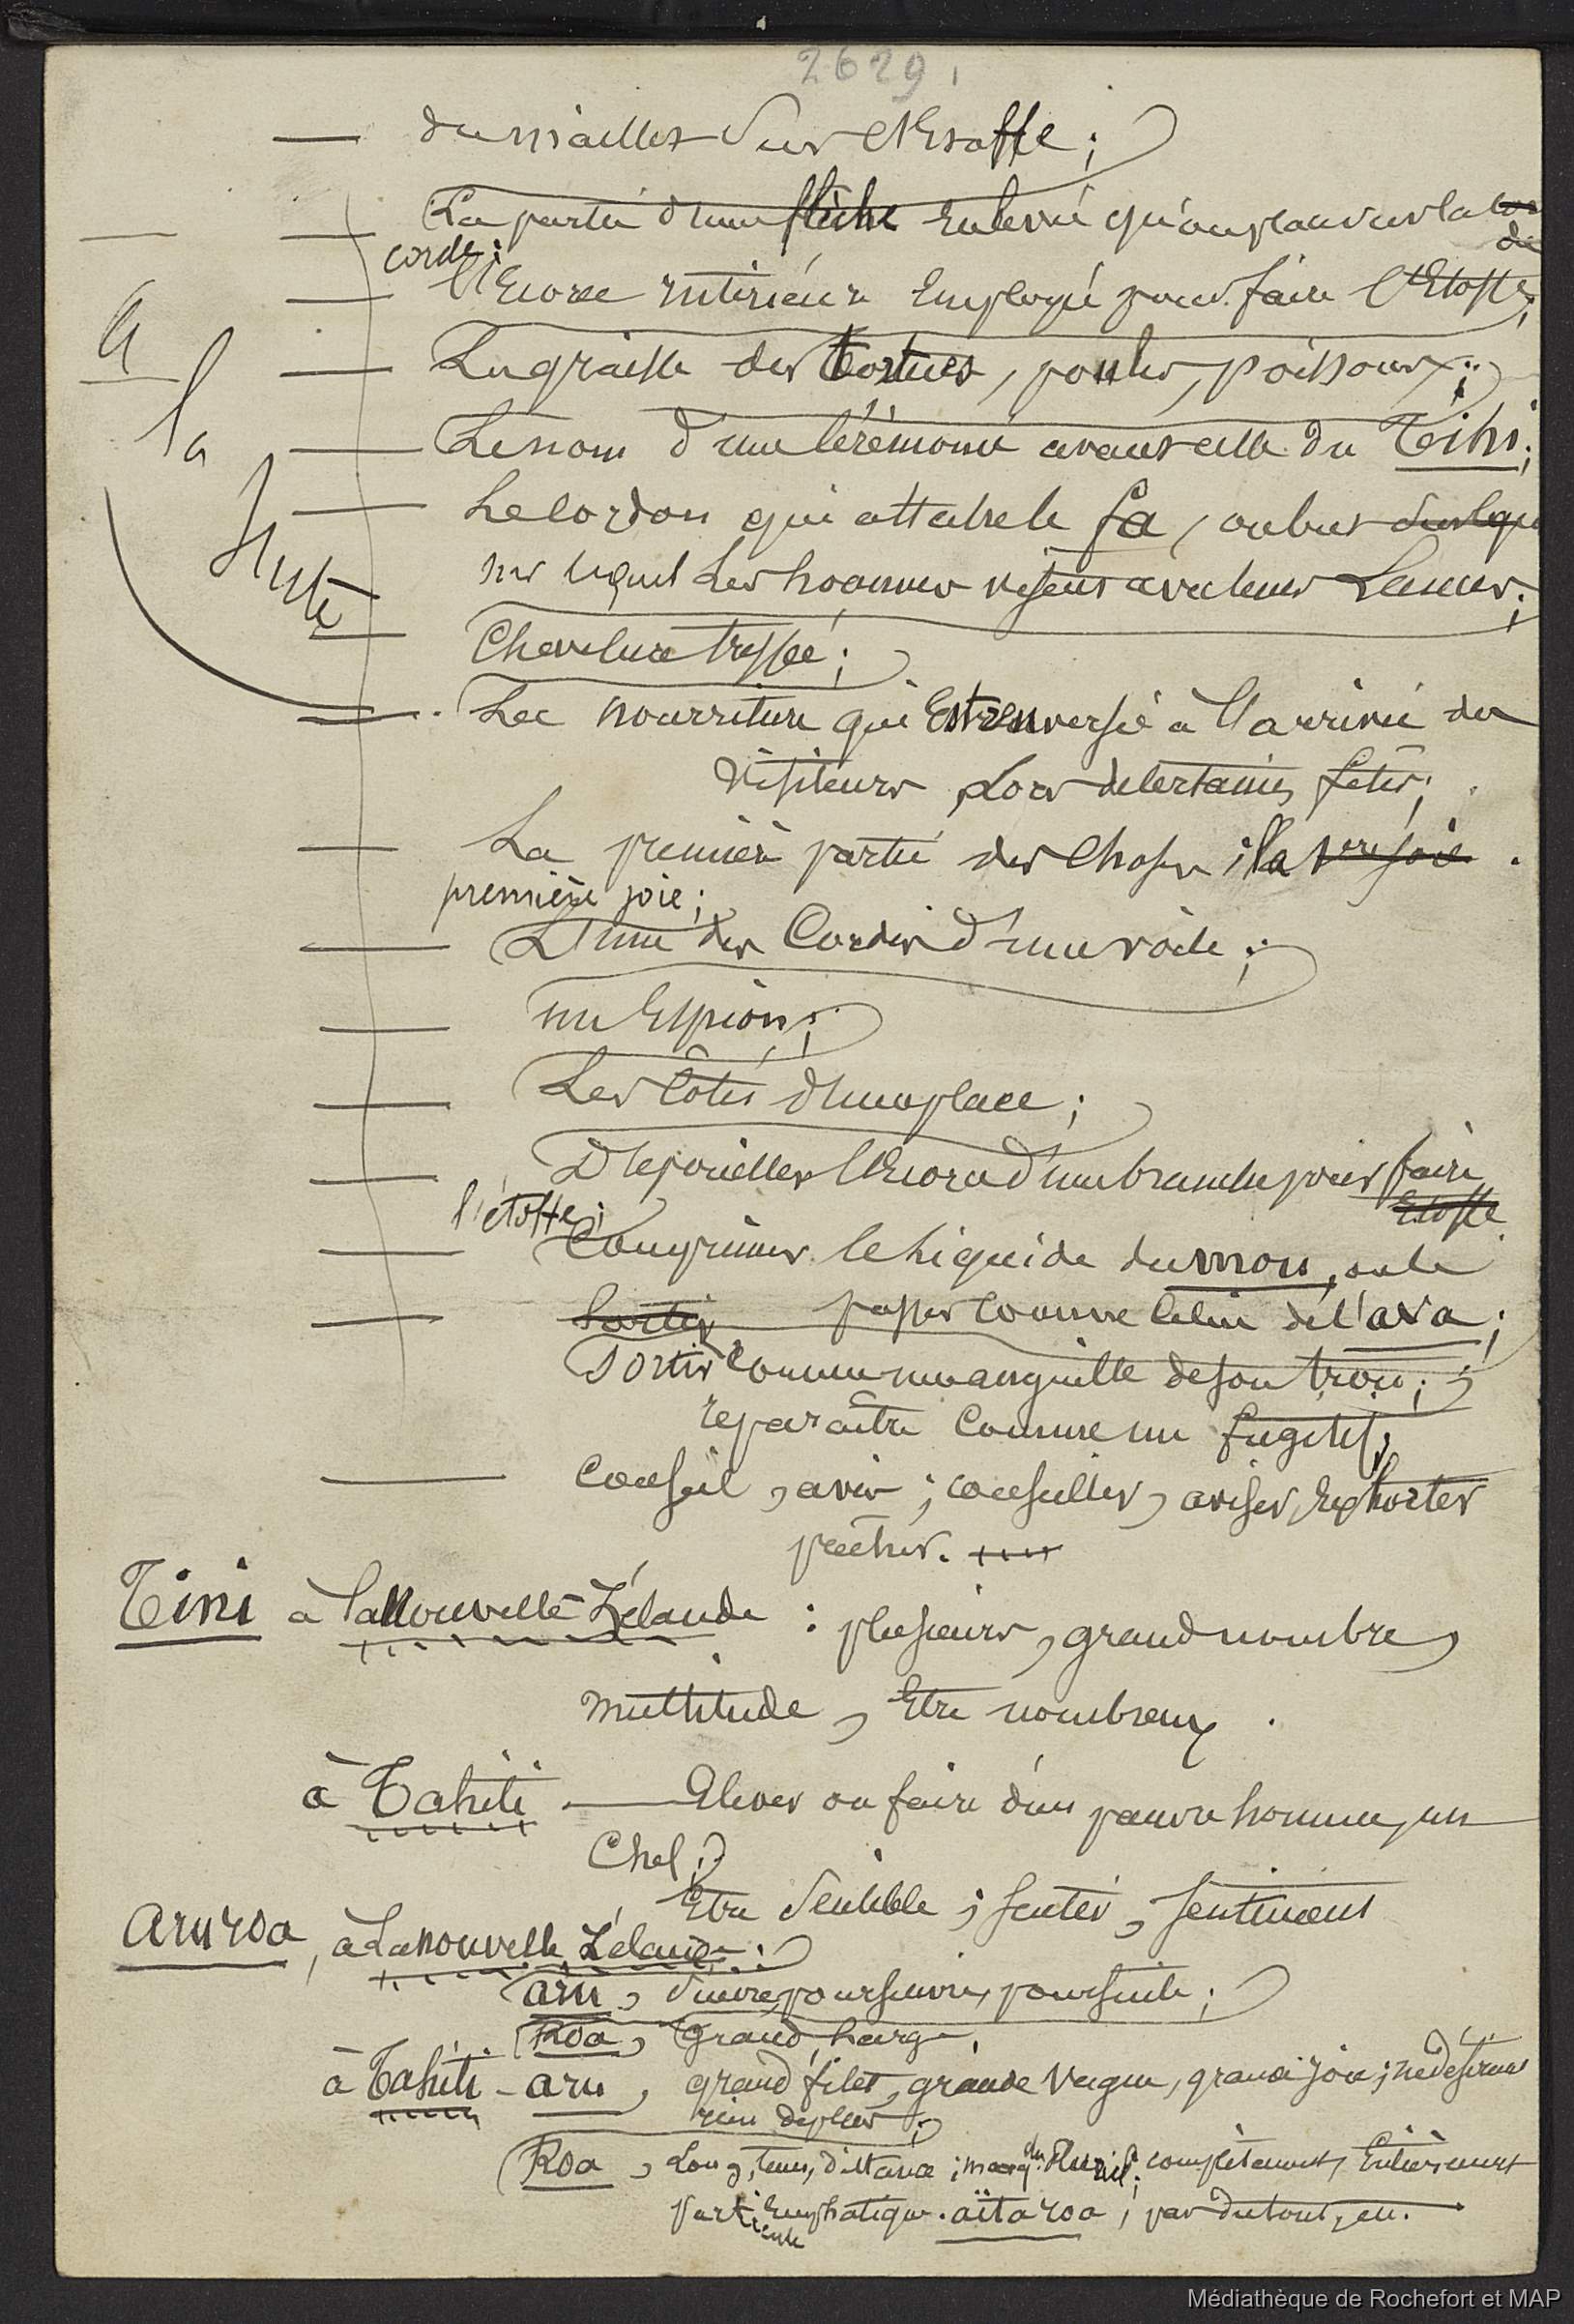 2629
— du mailles sur étoffe ;
— La partie d'une flèche enlevée qu'on place sur la cor
de
corde ;
— l'Ecorce intérieure Employée pour faire l'Etoffe ;
— La graisse des tortues, poules, poissons ;
— Le nom d'une Cérémonie avant celle du Tihi ;
— Le cordon qui attache le fa, ou but
sur lequel Les hommes visent avec leurs Lances ;
a
la
suite
— Chevelure tressée ;
— La nourriture qui Est renversée à l'arrivée des
Visiteurs, Lors de certaines fêtes ;
— La première partie des Choses ; la 1ere joie
première joie ;
— L'une des Cordes d'une voile ;
— un Espion ;
— Les Côtés d'une place ;
— Dépouiller l'Ecorce d'une branche pour faire
Etoffe
l'étoffe ;
— Comprimer le liquide du mou, ou le
— Sortir passer comme celui de l'ava ;
Sortir comme une anguille de son trou ;
reparaître Comme un fugitif ;
— Conseil, avis ; conseiller, aviser, Exhorter
prêcher.
Tini à la Nouvelle Zélande : plusieurs, grand nombre,
multitude, Etre nombreux.
à Tahiti — Elever ou faire d'un pauvre homme, un
Chef ;
Etre Sensible ; sentir, sentiment
Aru roa, à La nouvelle Zélande :
aru, suivre, poursuivre, poursuite ;
Roa, Grand, large,
à Tahiti - aru, grand filet, grande Vague, grande joie ; ne désirant
rien de plus ;
Roa, Long, tems, distance ; marq. du Pluriel ; complètement, Entièrement
particule Emphatique. aïta roa, pas du tout, etc.
Médiathèque de Rochefort et MAP